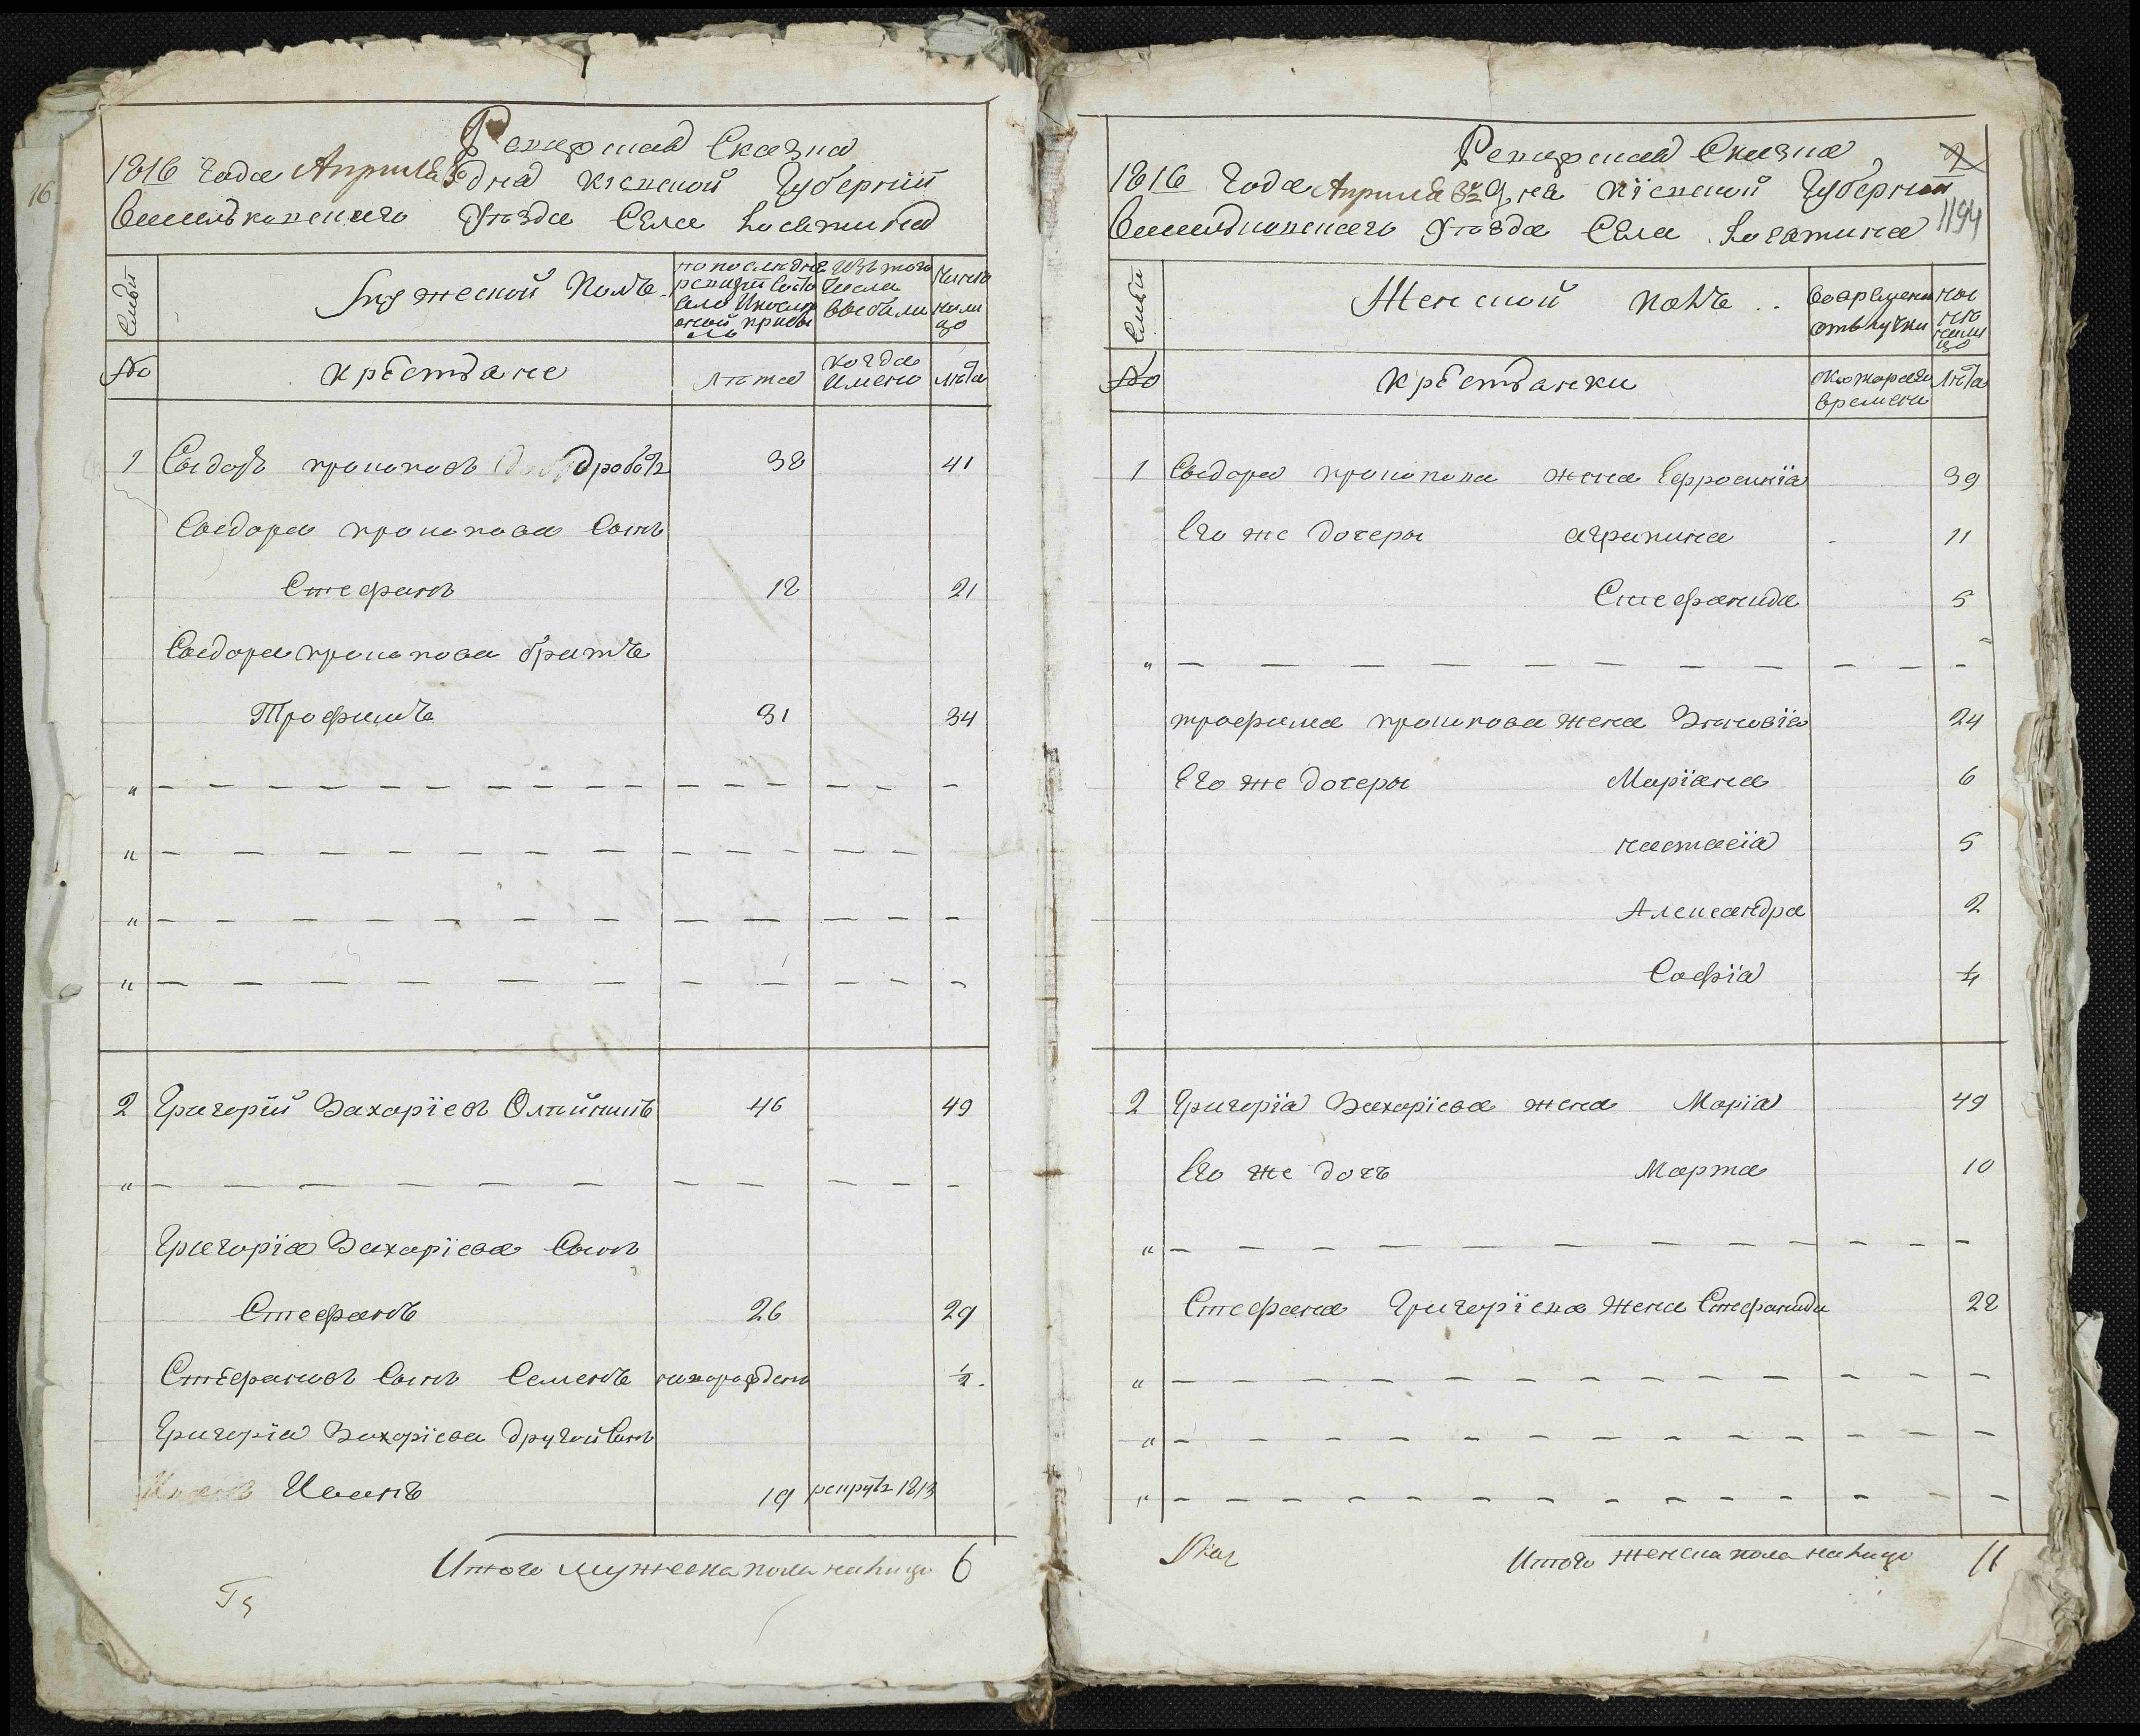 16
Ревизская Сказка
1816 Года Апреля 3 дня Кіевской Губерніи
Васильковскаго Уѣзда Села
Семьи
Мужеской Полъ
по последней ревизіи состояло и после оной прибыло
Изъ того числа выбыли
Нынѣ на лицо
№
крестьяне
лѣта
когда имено
лѣта
1 Сыдоръ прокоповъ 38 41
Сыдора прокопова Сынъ
Стефанъ 18 21
Сыдора прокопова братъ
Трофимъ 31 34
" — — — — — — — — — — — — — — —
" — — — — — — — — — — — — —
" — — — — — — — — — — — — —
" — — — — — — — — — — — —
2 Григорій Захаріевъ Олѣйникъ 46 49
" — — — — — — — — — — — —
Григорія Захаріева Сынъ
Стефанъ 26 29
Стефановъ Сынъ Семенъ новорожденъ ½
Григорія Захаріева другой Сынъ
Иванъ Иванъ 19 рекрутъ 1813
Итого мужеска пола налицо 6
Ревизская Сказка
2
1816 Года Апреля 3го Дня Кіевской Губерніи
1194
Васильковскаго Уѣзда Села
Семьи
Женской полъ
Во временной отълучки
Нынѣ налицо
№
крестьянки
скотораго времени
лѣта
1 Сыдора прокопова жена Ефросинія 39
Его же дочеры агрипина 11
Стефанида 5
" — — — — — — — — — — — —
трофима прокопова жена Зѣновія 24
Его же дочеры Маріана 6
настасія 5
Александра 2
Софія ¼
2 Григорія Захаріева жена Марія 49
Его же дочъ Марта 10
" — — — — — — — — — — — —
Стефана Григоріева жена Стефанида 22
" — — — — — — — — — — — — —
" — — — — — — — — — — — — —
" — — — — — — — — — — — — —
Итого женска пола налицо 11